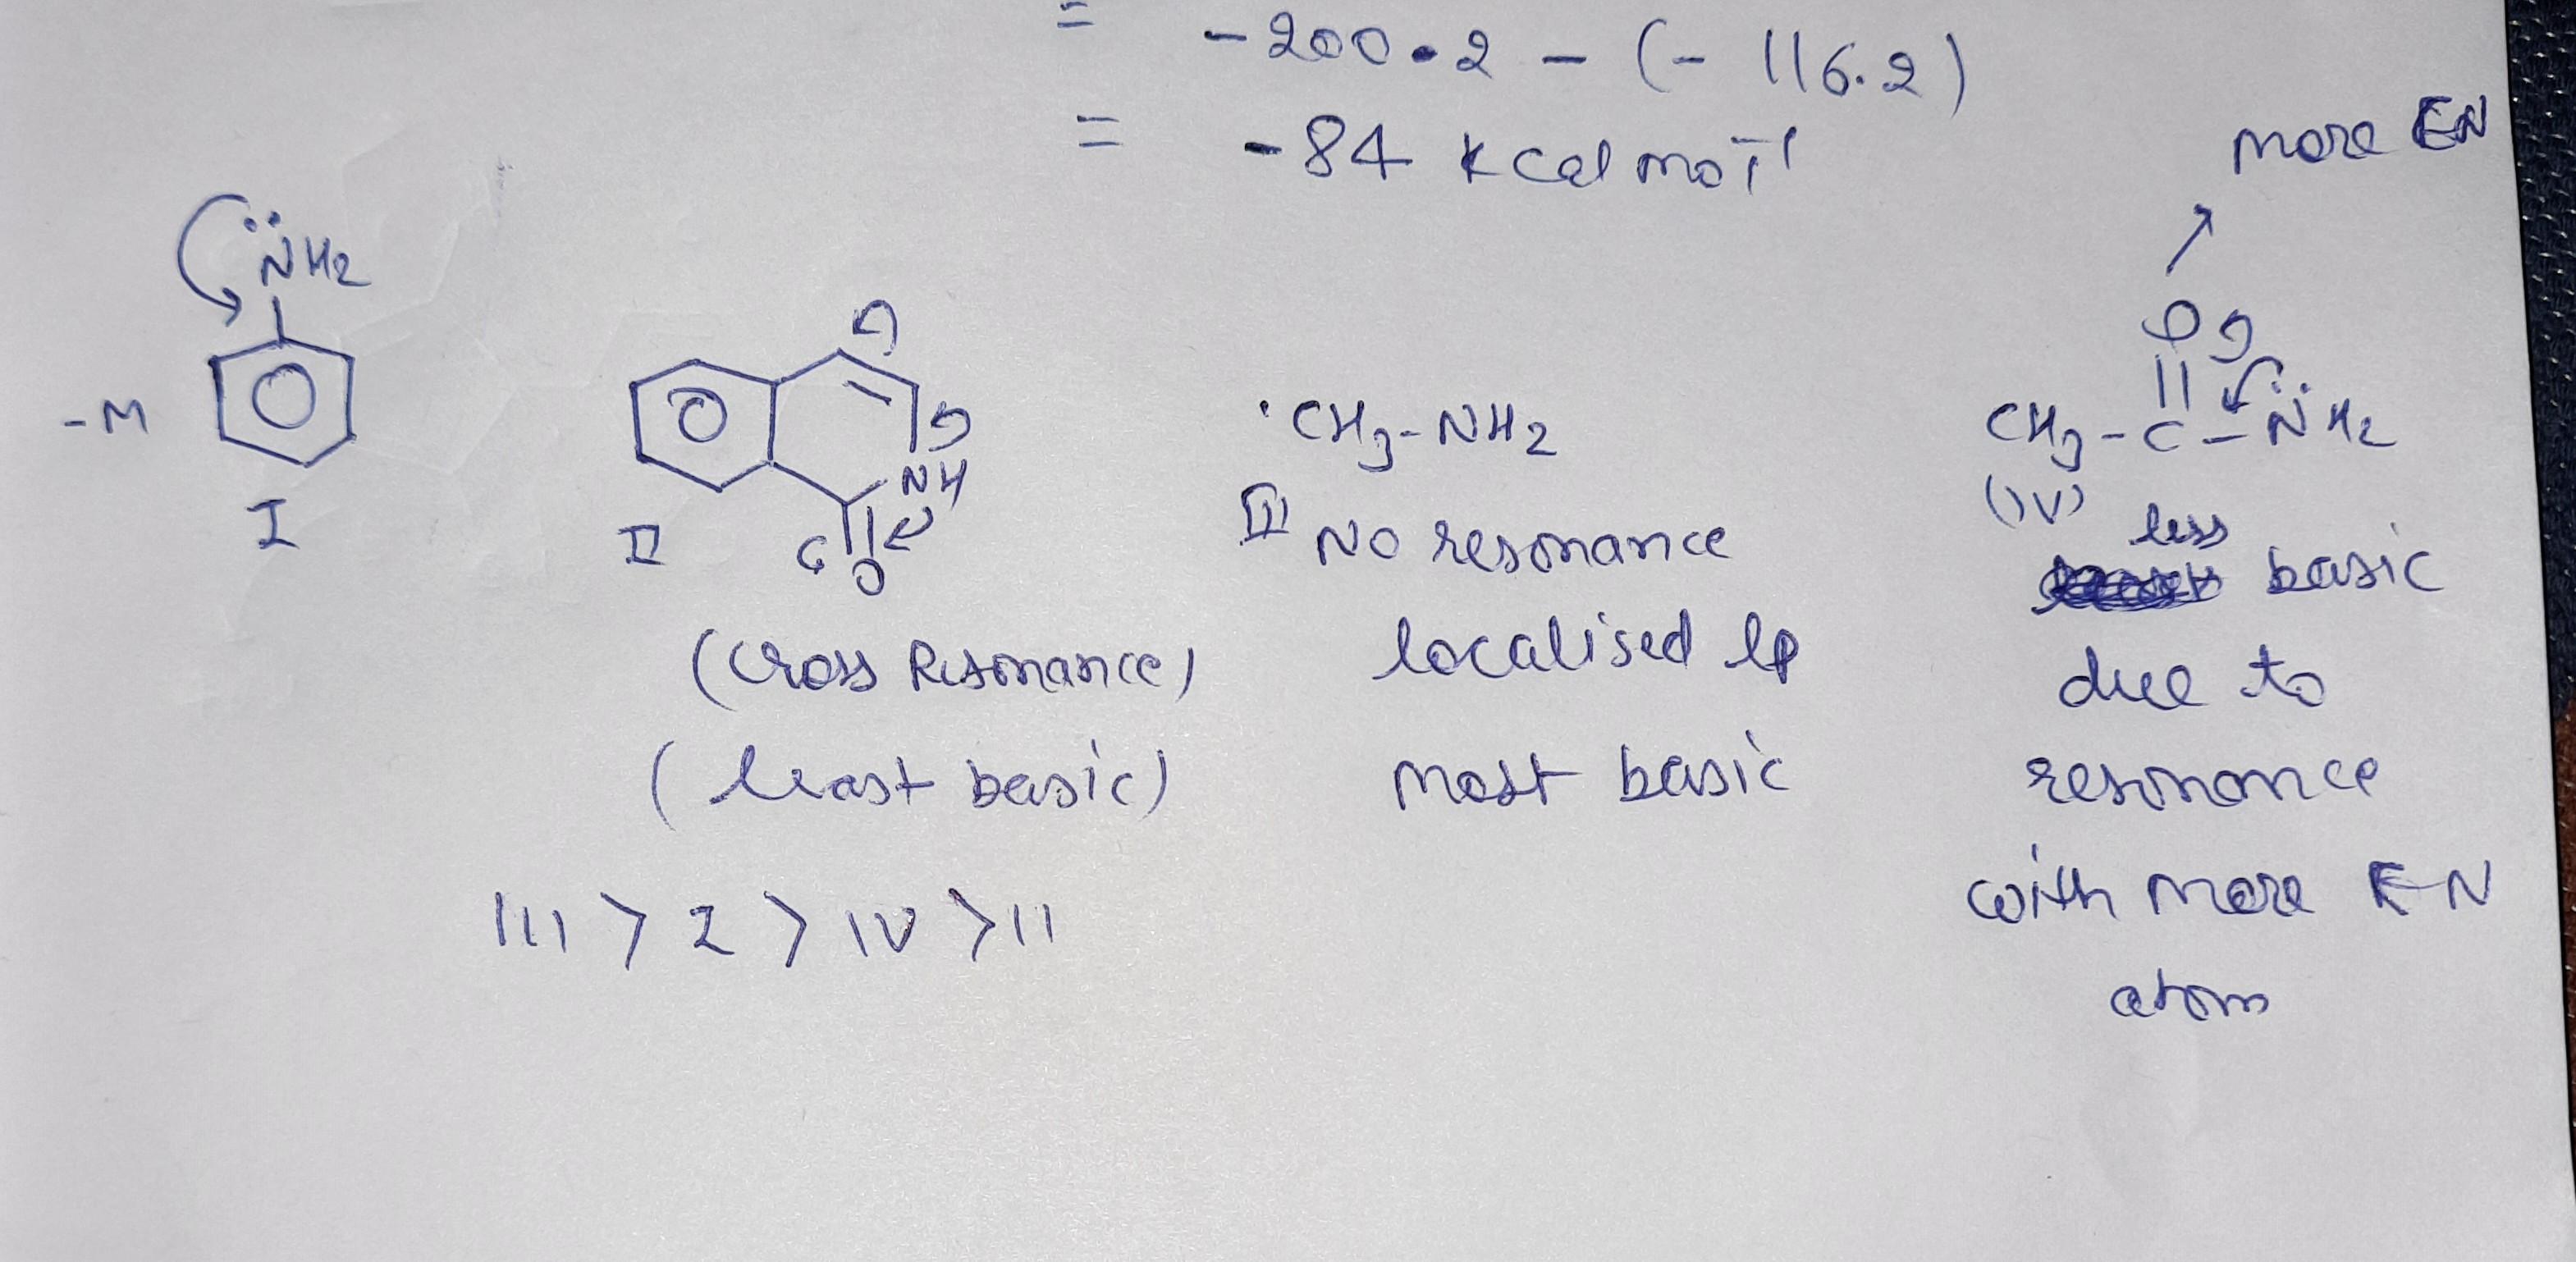 = -200.2 - (-116.2)
= -84 kcal mol⁻¹
more EN
N̈H2
-M
I
NH
C
O
II
CH3-NH2
III
No resonance
localised lp
most basic
(cross Resonance)
(least basic)
O
||
CH3-C-N̈H2
(IV)
less
basic
due to
resonance
with more EN
atom
III > I > IV > II